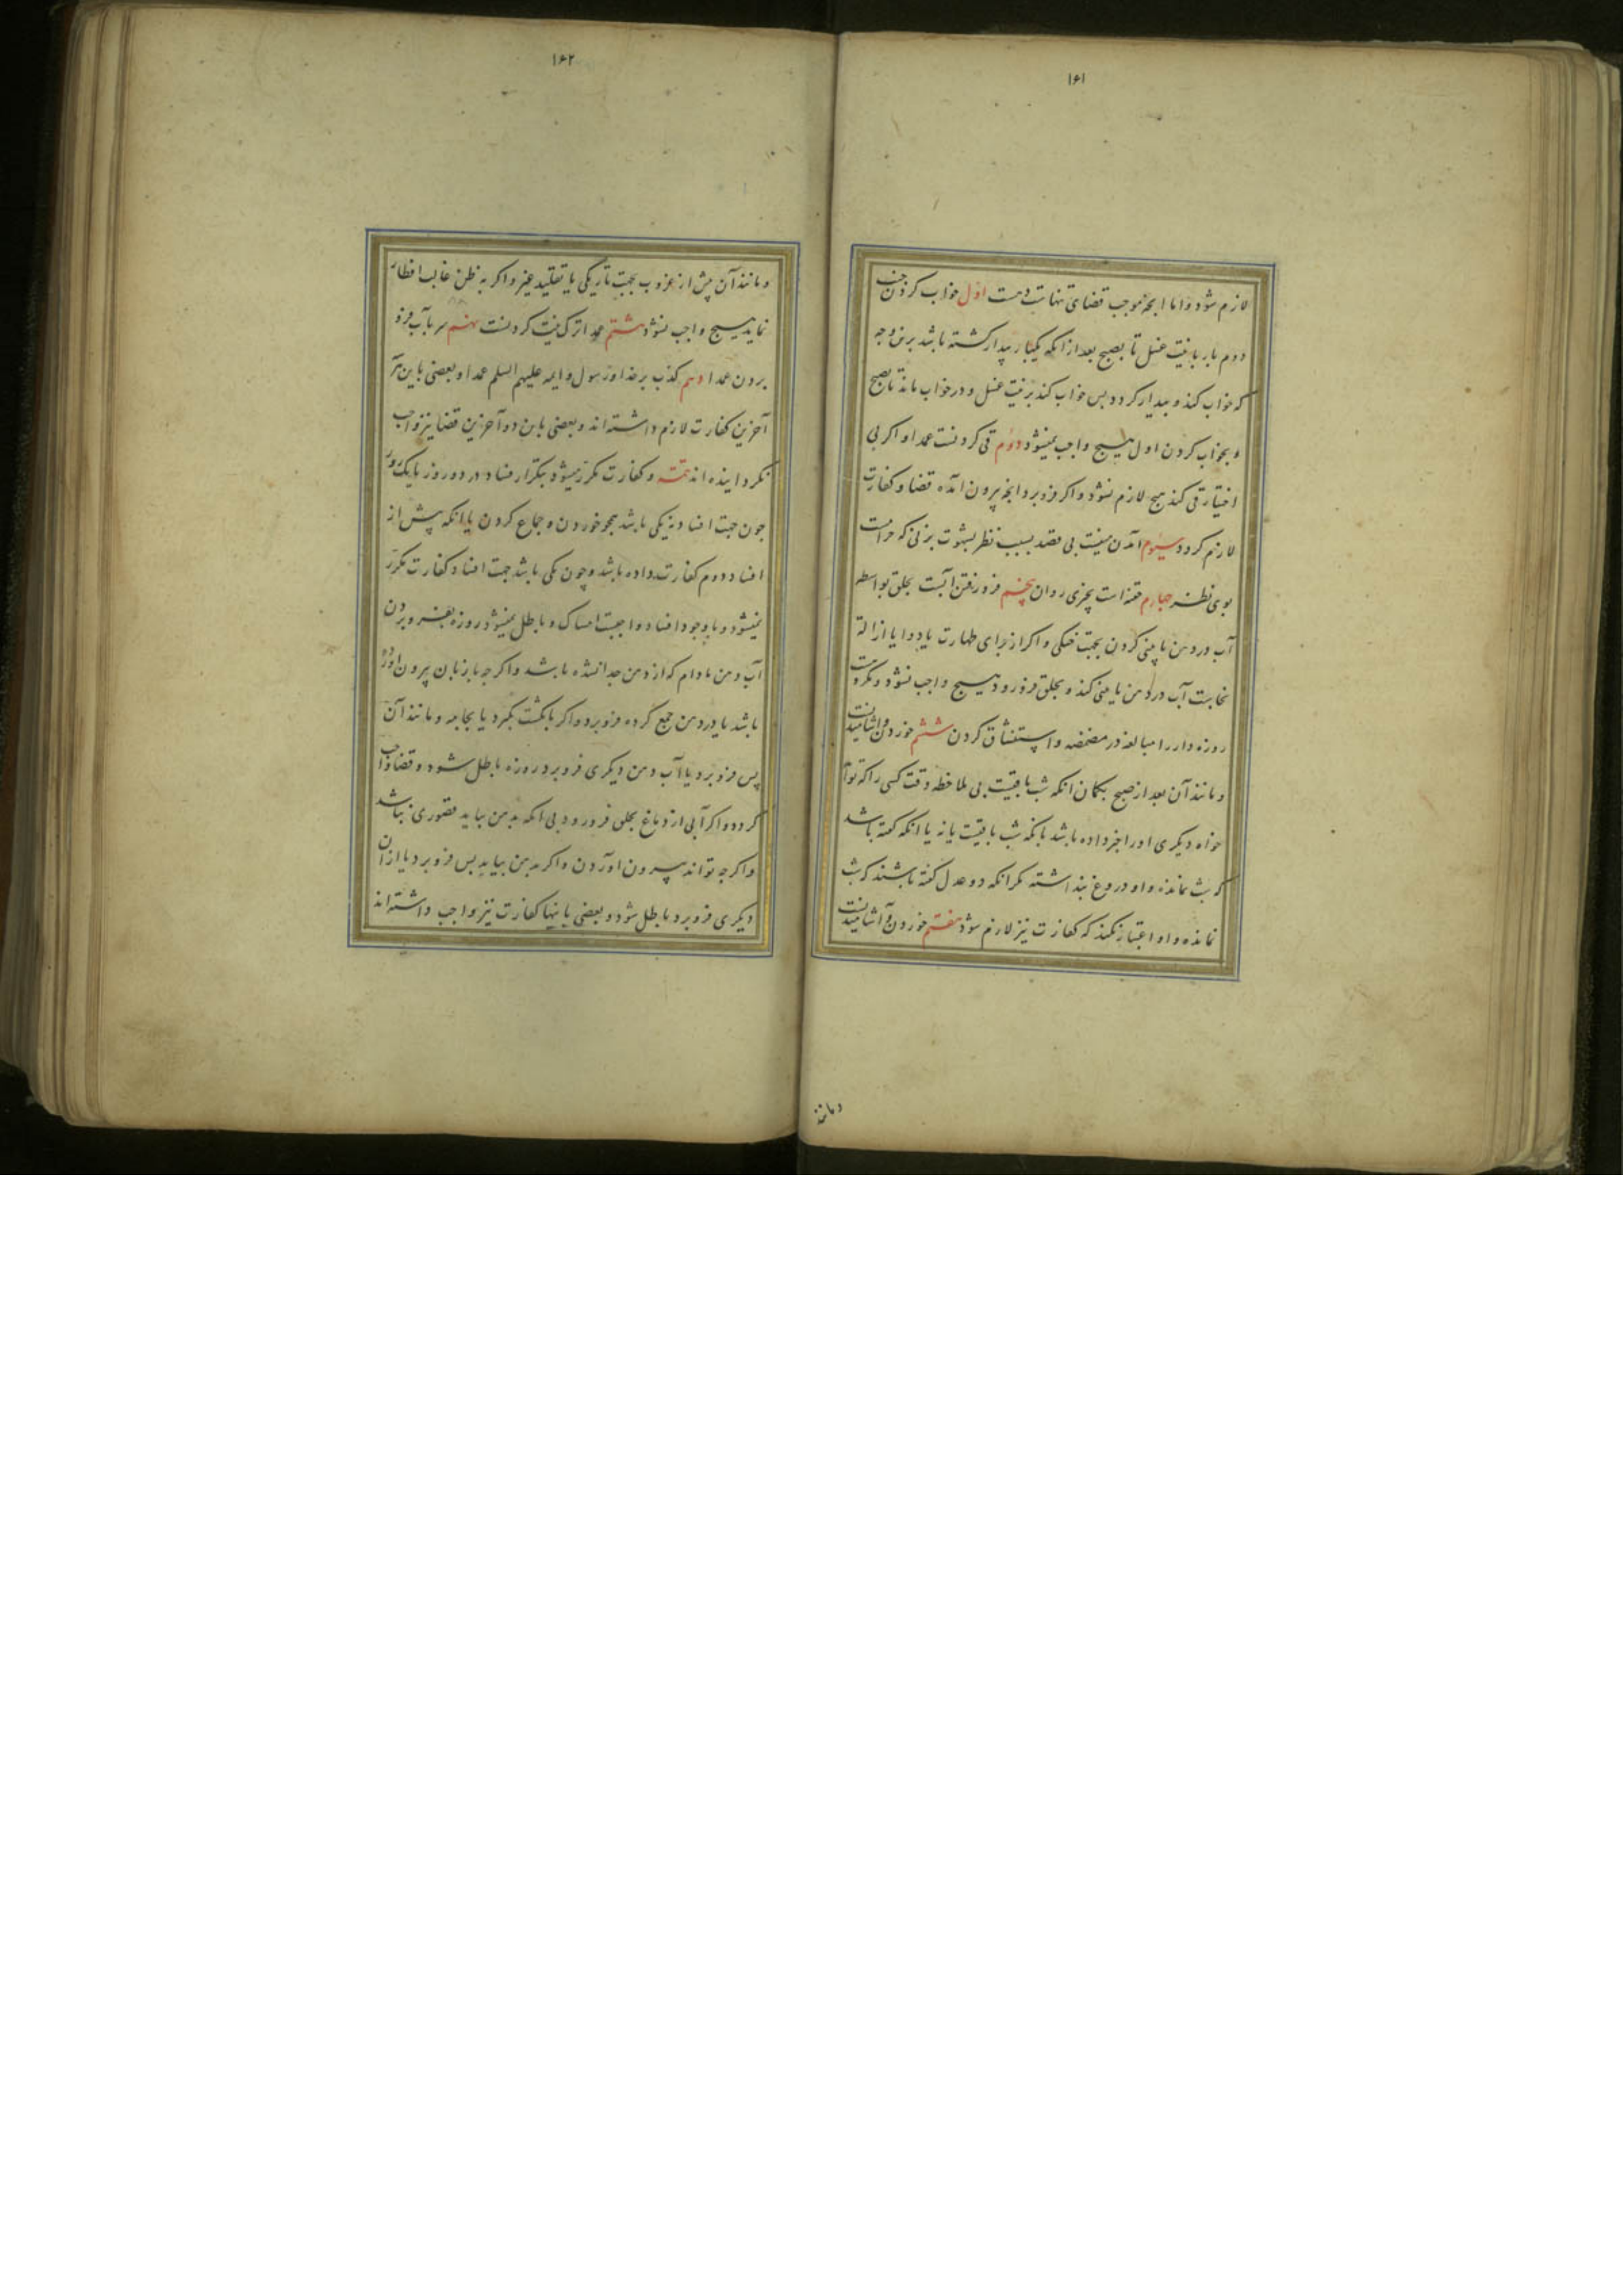 ۱۶۱
لازم شود و اما انچه موجب قضای تنهاست ده است اول خواب کردن جنب
دوم بار با نیت غسل تا بصبح بعد از انکه یکبار بیدار کشته باشد برین وجه
که خواب کند و بیدار کردد پس خواب کند بر نیت غسل و در خواب ماند تا بصبح
و بخواب کردن اول هیچ واجب نمیشود دوم قی کردنست عمدا و اکر بی
اختیار قی کند هیچ لازم نشود و اکر فرو برد انچه بیرون آمده قضا و کفارت
لازم کردد سیوم آمدن منیست بی قصد بسبب نظر بشهوت بزنی که حرامست
بوی نظر چهارم حقنه است بچیزی روان پنجم فرو رفتن آبست بحلق بواسطه
آب در دهن یا بینی کردن بجهت خنکی و اکر از برای طهارت یا دوا یا ازالة
نجاست آب در دهن یا بینی کند و بحلق فرو رود هیچ واجب نشود و مکروهست
روزه دار را مبالغه در مضمضه و استنشاق کردن ششم خوردن و آشامیدنست
و مانند آن بعد از صبح بکمان انکه شب باقیست بی ملاحظه وقت کسی را که تواند
خواه دیکری او را خبر داده باشد بانکه شب باقیست یا نه یا انکه کفته باشد
که شب نمانده و او دروغ پنداشته مکر انکه دو عدل کفته باشند که شب
نمانده و او اعتبار نکند که کفارت نیز لازم شود هفتم خوردن و آشامیدنست
و مانند
۱۶۲
و مانند آن پیش از غروب بجهت تاریکی یا تقلید غیر و اکر به ظن غالب افطار
نماید هیچ واجب نشود هشتم عمدا ترک نیت کردنست نهم سر بآب فرو
بردن عمدا دهم کذب بر خدا و رسول و ایمه علیهم السلم عمدا و بعضی باین هر
آخرین کفارت لازم داشته اند و بعضی باین دو آخرین قضا نیز واجب
نکردانیده اند تتمه و کفارت مکرر میشود بتکرار فساد در دو روز یا یک روز
چون جهت افساد نه یکی باشد همچو خوردن و جماع کردن یا انکه پیش از
افساد دوم کفارت داده باشد و چون یکی باشد جهت افساد کفارت مکرر
نمیشود و با وجود افساد واجبست امساک و باطل نمیشود روزه بفرو بردن
آب دهن مادام که از دهن جدا نشده باشد و اکرچه با زبان بیرون آورده
باشد یا در دهن جمع کرده فرو برد و اکر بانکشت بکیرد یا بجامه و مانند آن
پس فرو برد یا آب دهن دیکری فرو برد روزه باطل شود و قضا واجب
کردد و اکر آبی از دماغ بحلق فرو رود بی انکه بدهن بیاید قصوری نباشد
و اکرچه تواند بیرون آوردن و اکر بدهن بیاید پس فرو برد یا از ان
دیکری فرو برد باطل شود و بعضی باینها کفارت نیز واجب داشته اند